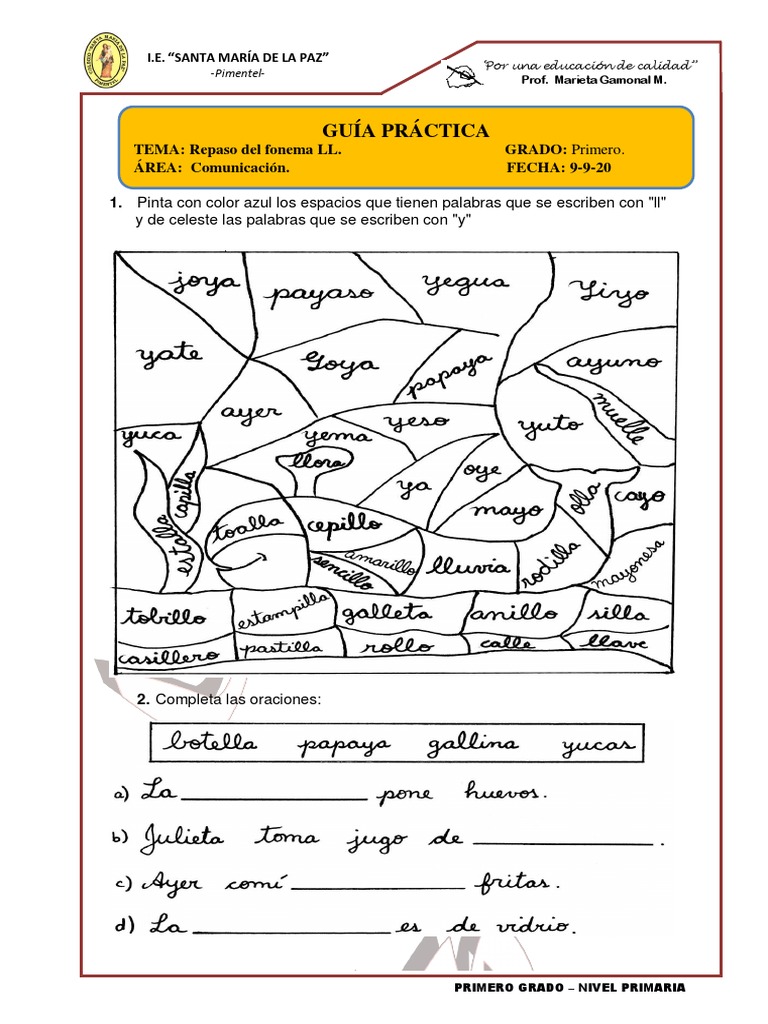 I.E. “SANTA MARÍA DE LA PAZ”
-Pimentel-
“Por una educación de calidad”
Prof. Marieta Gamonal M.
GUÍA PRÁCTICA
TEMA: Repaso del fonema LL. GRADO: Primero.
ÁREA: Comunicación. FECHA: 9-9-20
1. Pinta con color azul los espacios que tienen palabras que se escriben con "ll"
y de celeste las palabras que se escriben con "y"
joya payaso yegua Yiyo
yate Goya papaya ayuno
ayer yeso yuto muelle
yuca yema
llora
capilla ya oye olla cayo
estalla toalla cepillo mayo
sencillo amarillo lluvia rodilla mayonesa
tobillo estampilla galleta anillo silla
casillero pastilla rollo calle llave
2. Completa las oraciones:
botella papaya gallina yucas
a) La ____________ pone huevos.
b) Julieta toma jugo de ____________.
c) Ayer comí ____________ fritas.
d) La ____________ es de vidrio.
PRIMERO GRADO – NIVEL PRIMARIA